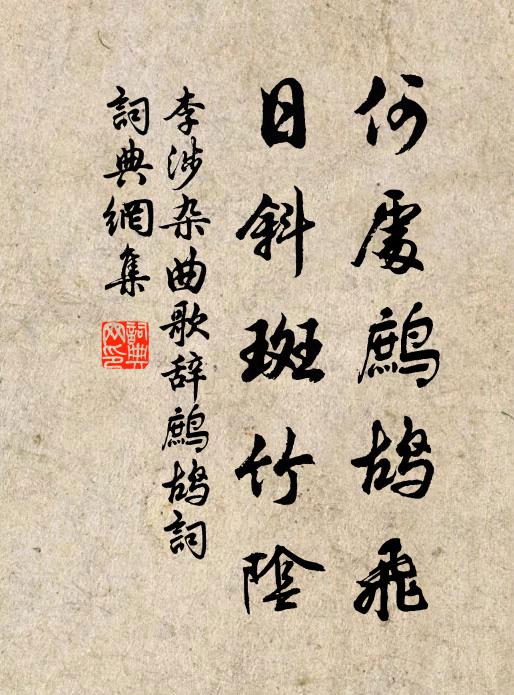 何處鷓鴣飛
日斜斑竹陰
李涉杂曲歌辞鷓鴣詞
詞典網集
詞典网印